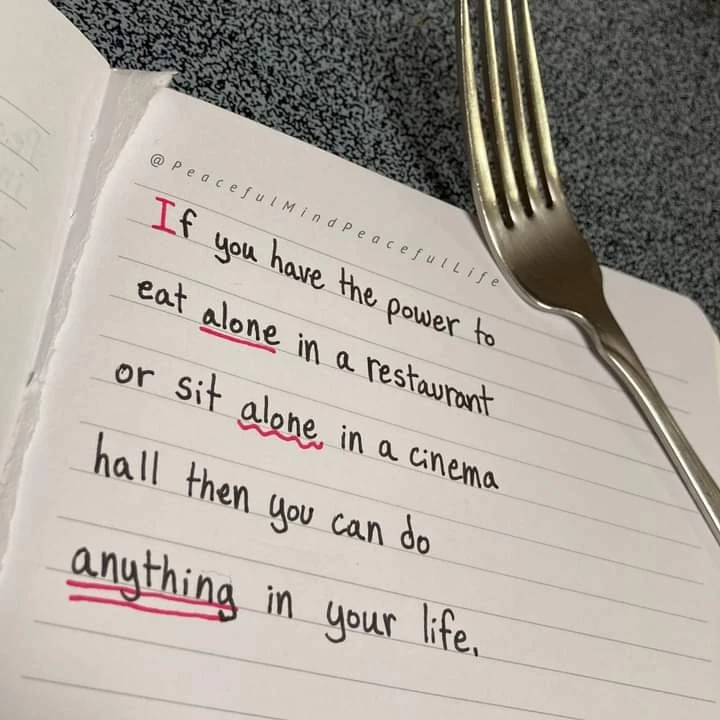 @PeacefulMindPeacefulLife
If you have the power to
eat alone in a restaurant
or sit alone in a cinema
hall then you can do
anything in your life.